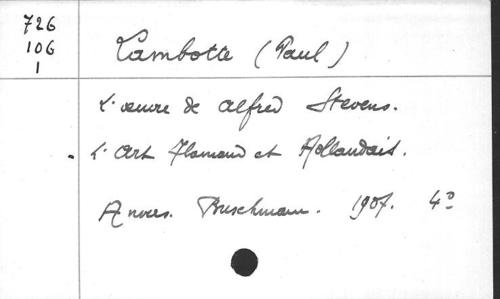 726
106
1
Lambotte (Paul)
L'œuvre de Alfred Stevens.
L'Art Flamand et Hollandais.
Anvers. Buschmann. 1907. 4°